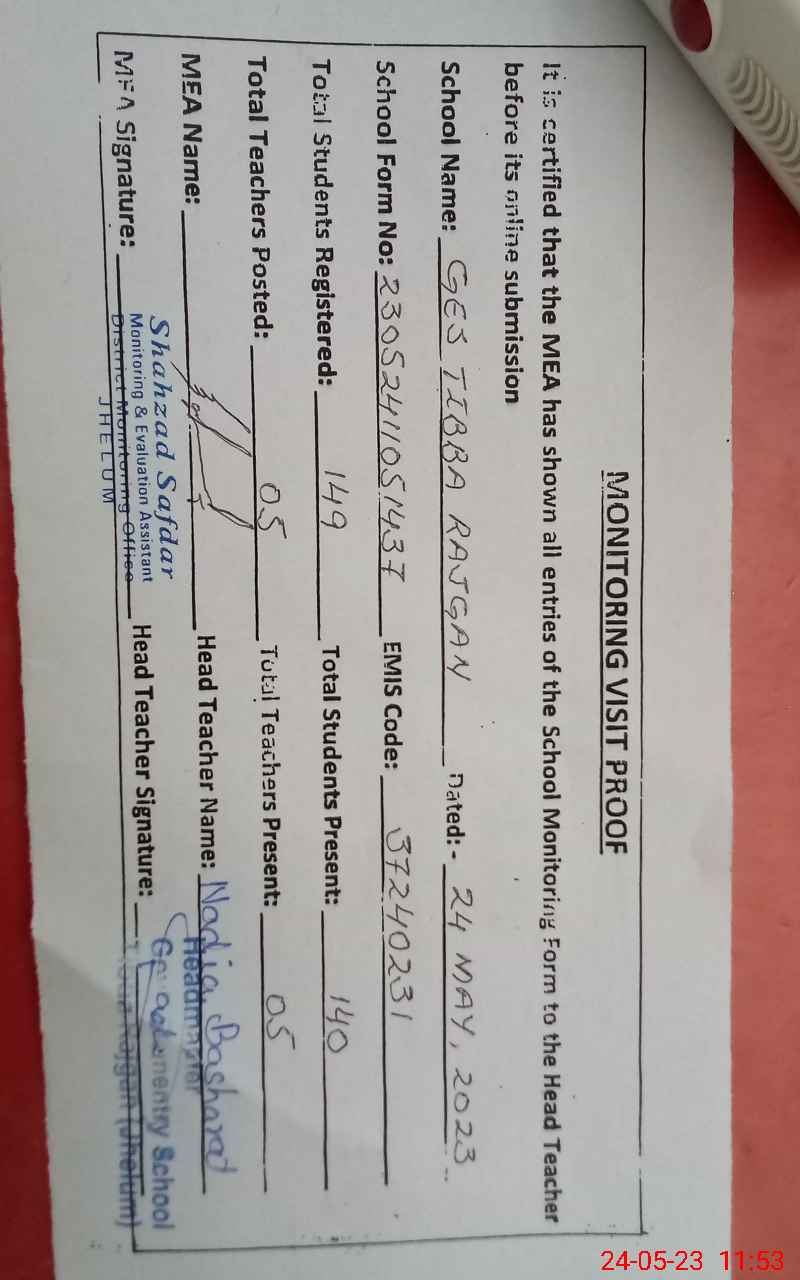 MONITORING VISIT PROOF
It is certified that the MEA has shown all entries of the School Monitoring Form to the Head Teacher
before its online submission
School Name: GES TIBBA RAJGAN Dated:- 24 MAY, 2023
School Form No: 23052411051437 EMIS Code: 37240231
Total Students Registered: 149 Total Students Present: 140
Total Teachers Posted: 05 Total Teachers Present: 05
MEA Name: Head Teacher Name: Nadia Basharat
Headmaster
Shahzad Safdar
Monitoring & Evaluation Assistant
MEA Signature: District Monitoring Office Head Teacher Signature:
JHELUM
mentry School
Rajgan (Jhelum)
24-05-23 11:53